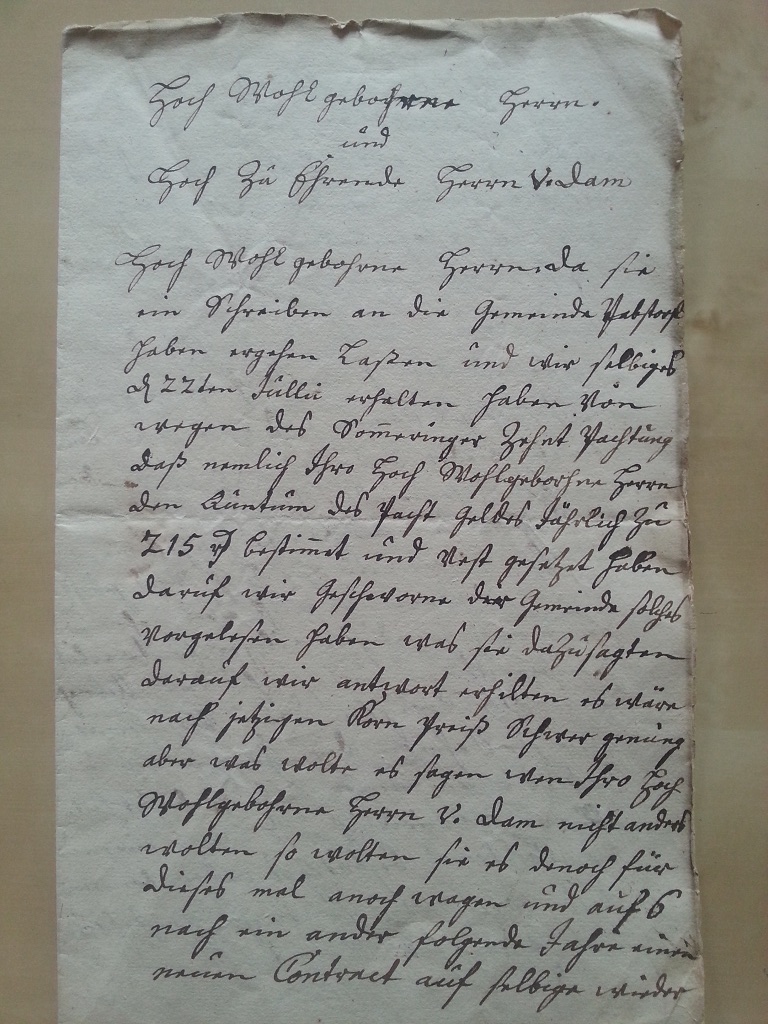 Hoch Wohl gebohrne Herrn.
und
Hoch Zu Ehrende Herrn V. Dam
Hoch Wohl gebohrne Herrn da sie
ein Schreiben an die Gemeinde Pabstorf
haben ergehen Laßen und wir selbiges
d 22ten Jullii erhalten haben Von
wegen des Som̅eringer Zehnt Pachtung
daß nemlich Ihro Hoch Wohlgebohrne Herrn
den Quntum des Pacht Geldes Jährlich Zu
215 rth bestim̅et und Vest gesetzet haben
daruf wir Geschworne der Gemeinde solches
Vorgelesen haben was sie dazu sagten
darauf wir antwort erhilten es wäre
nach jetzigen Korn Preiß Schwer genung
aber was wolte es sagen wen Ihro Hoch
Wohlgebohrne Herrn V. Dam nicht anders
wolten so wolten sie es denoch für
dieses mal anoch wagen und auf 6
nach ein ander folgende Jahre einen
neuen Contract auf selbige wieder